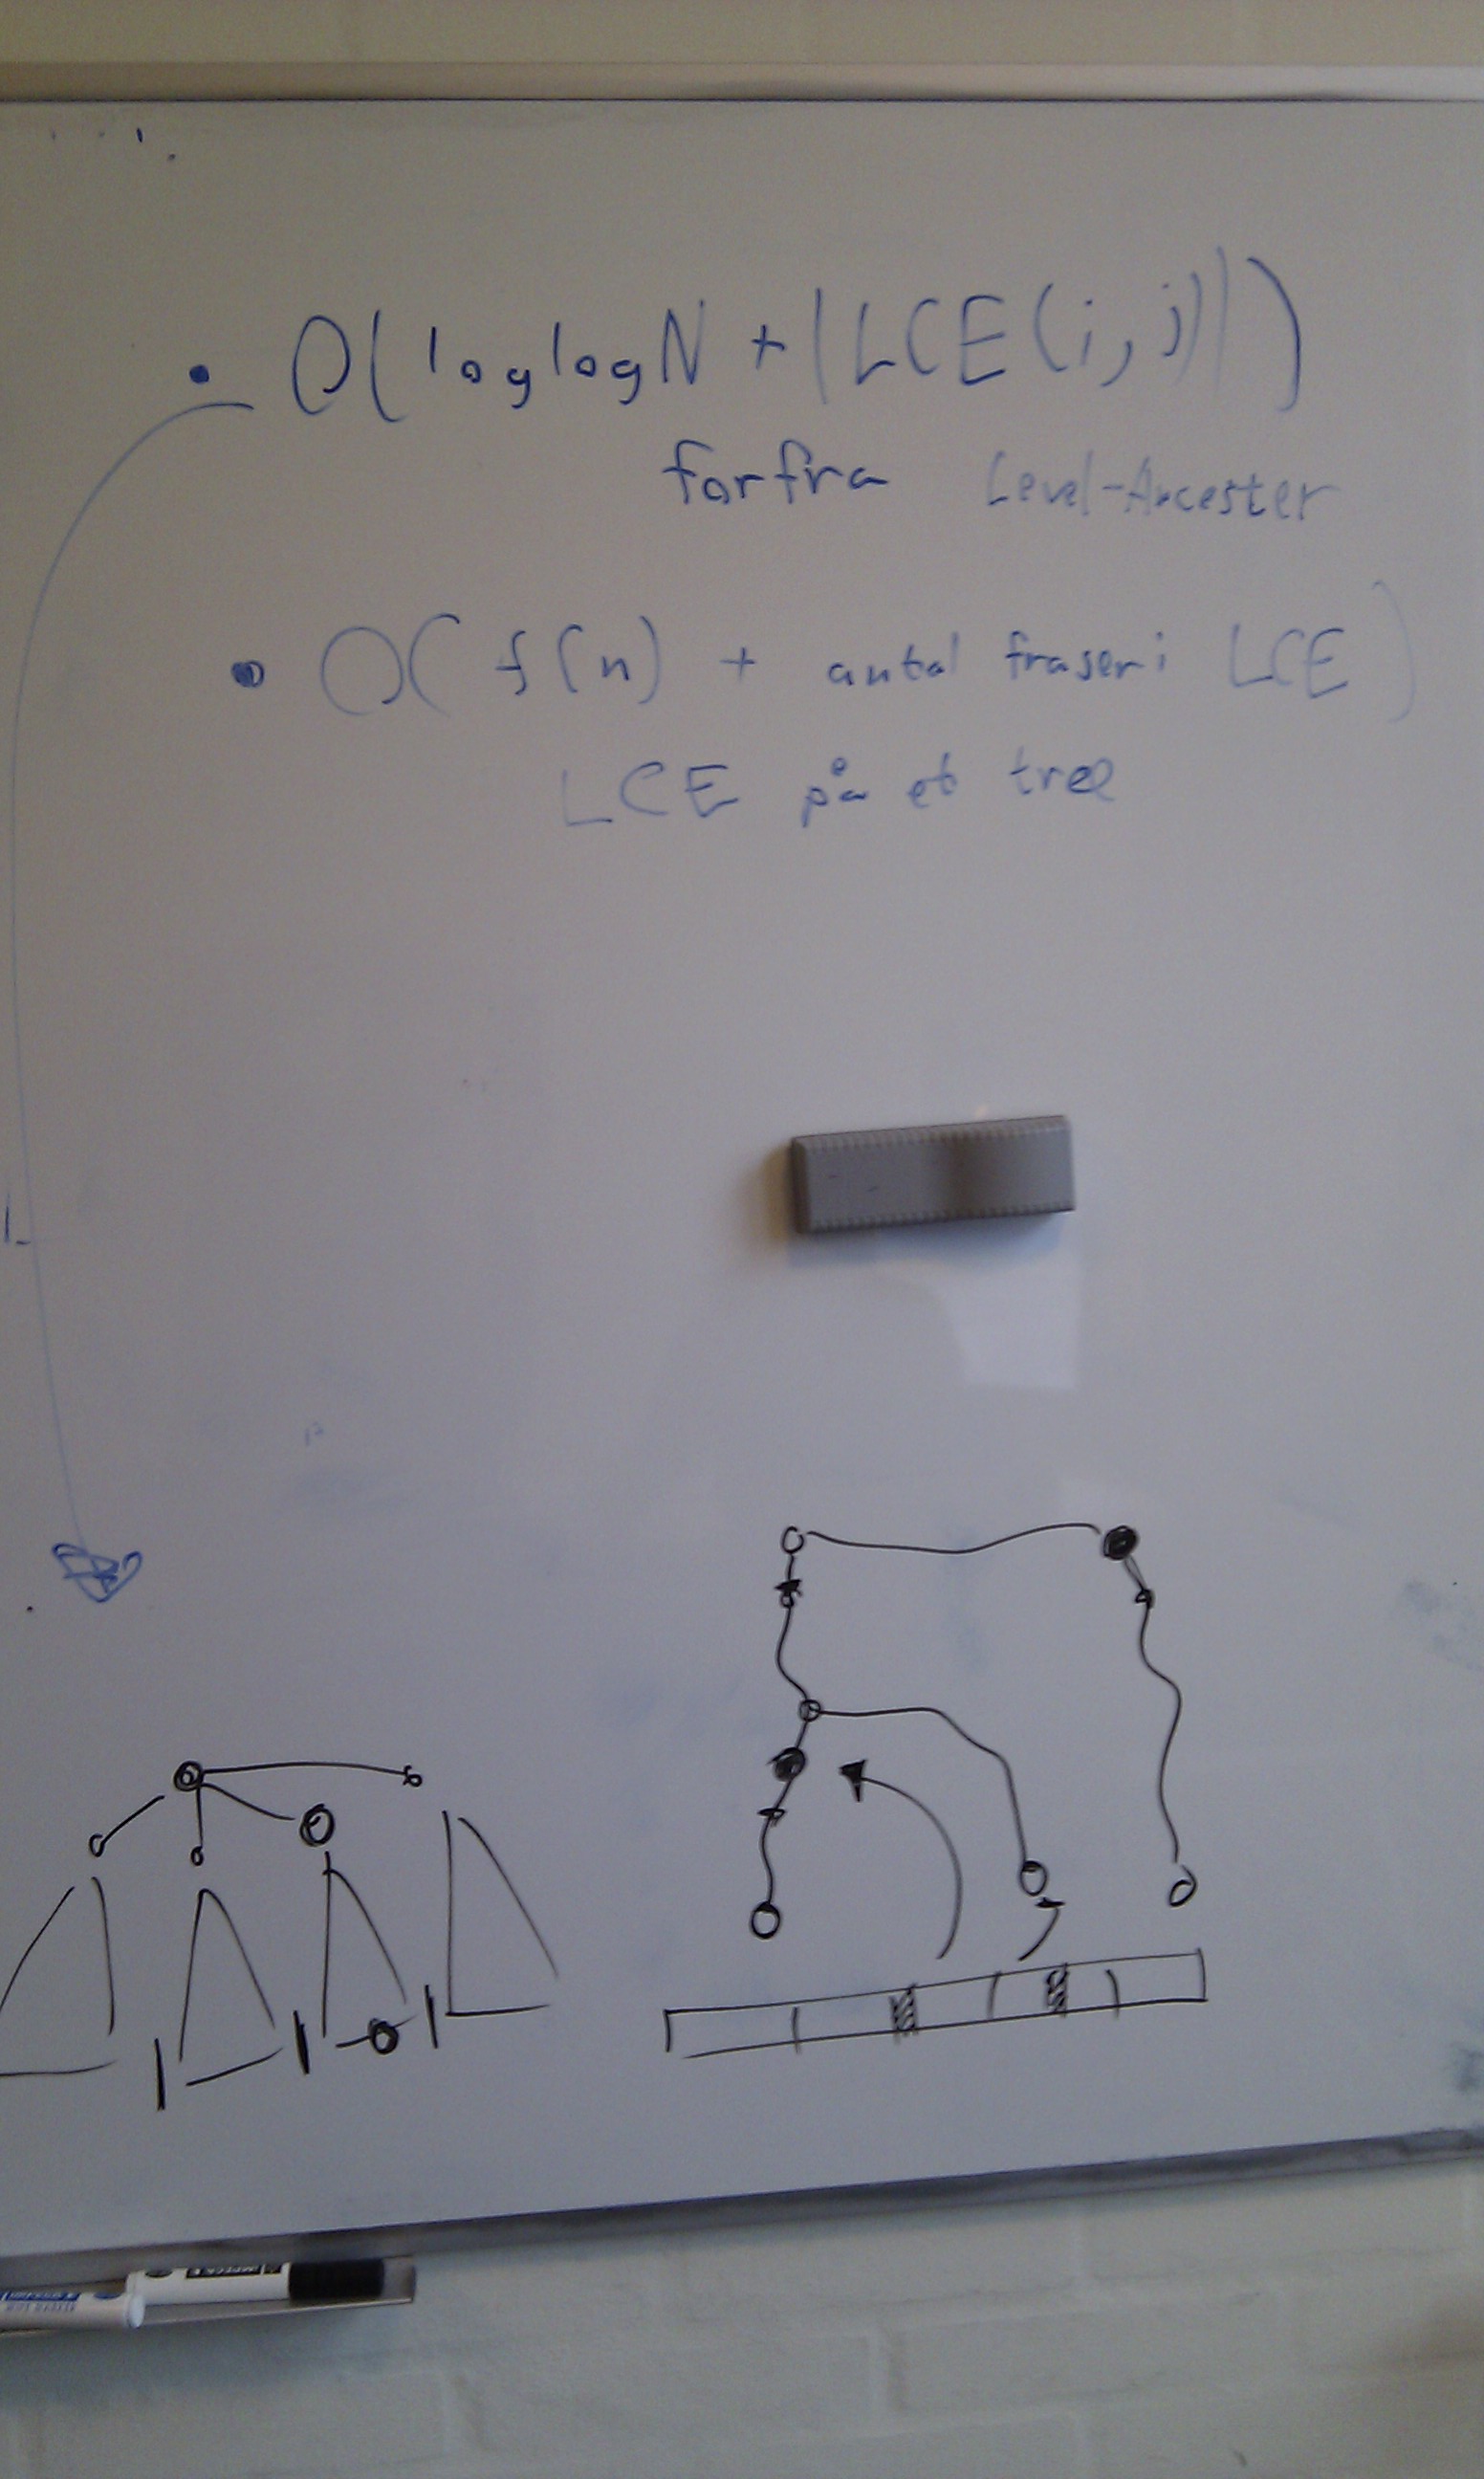 • O(loglogN + |LCE(i,j)|)
forfra Level-Ancester
• O(f(n) + antal fraser i LCE)
LCE på et træ